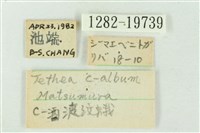 APR 23, 1982
池端
B-S. CHANG
1282-19739
シマエベニトガ
リバ 18-10
Tethea c-album
Matsumura
C-波紋蛾